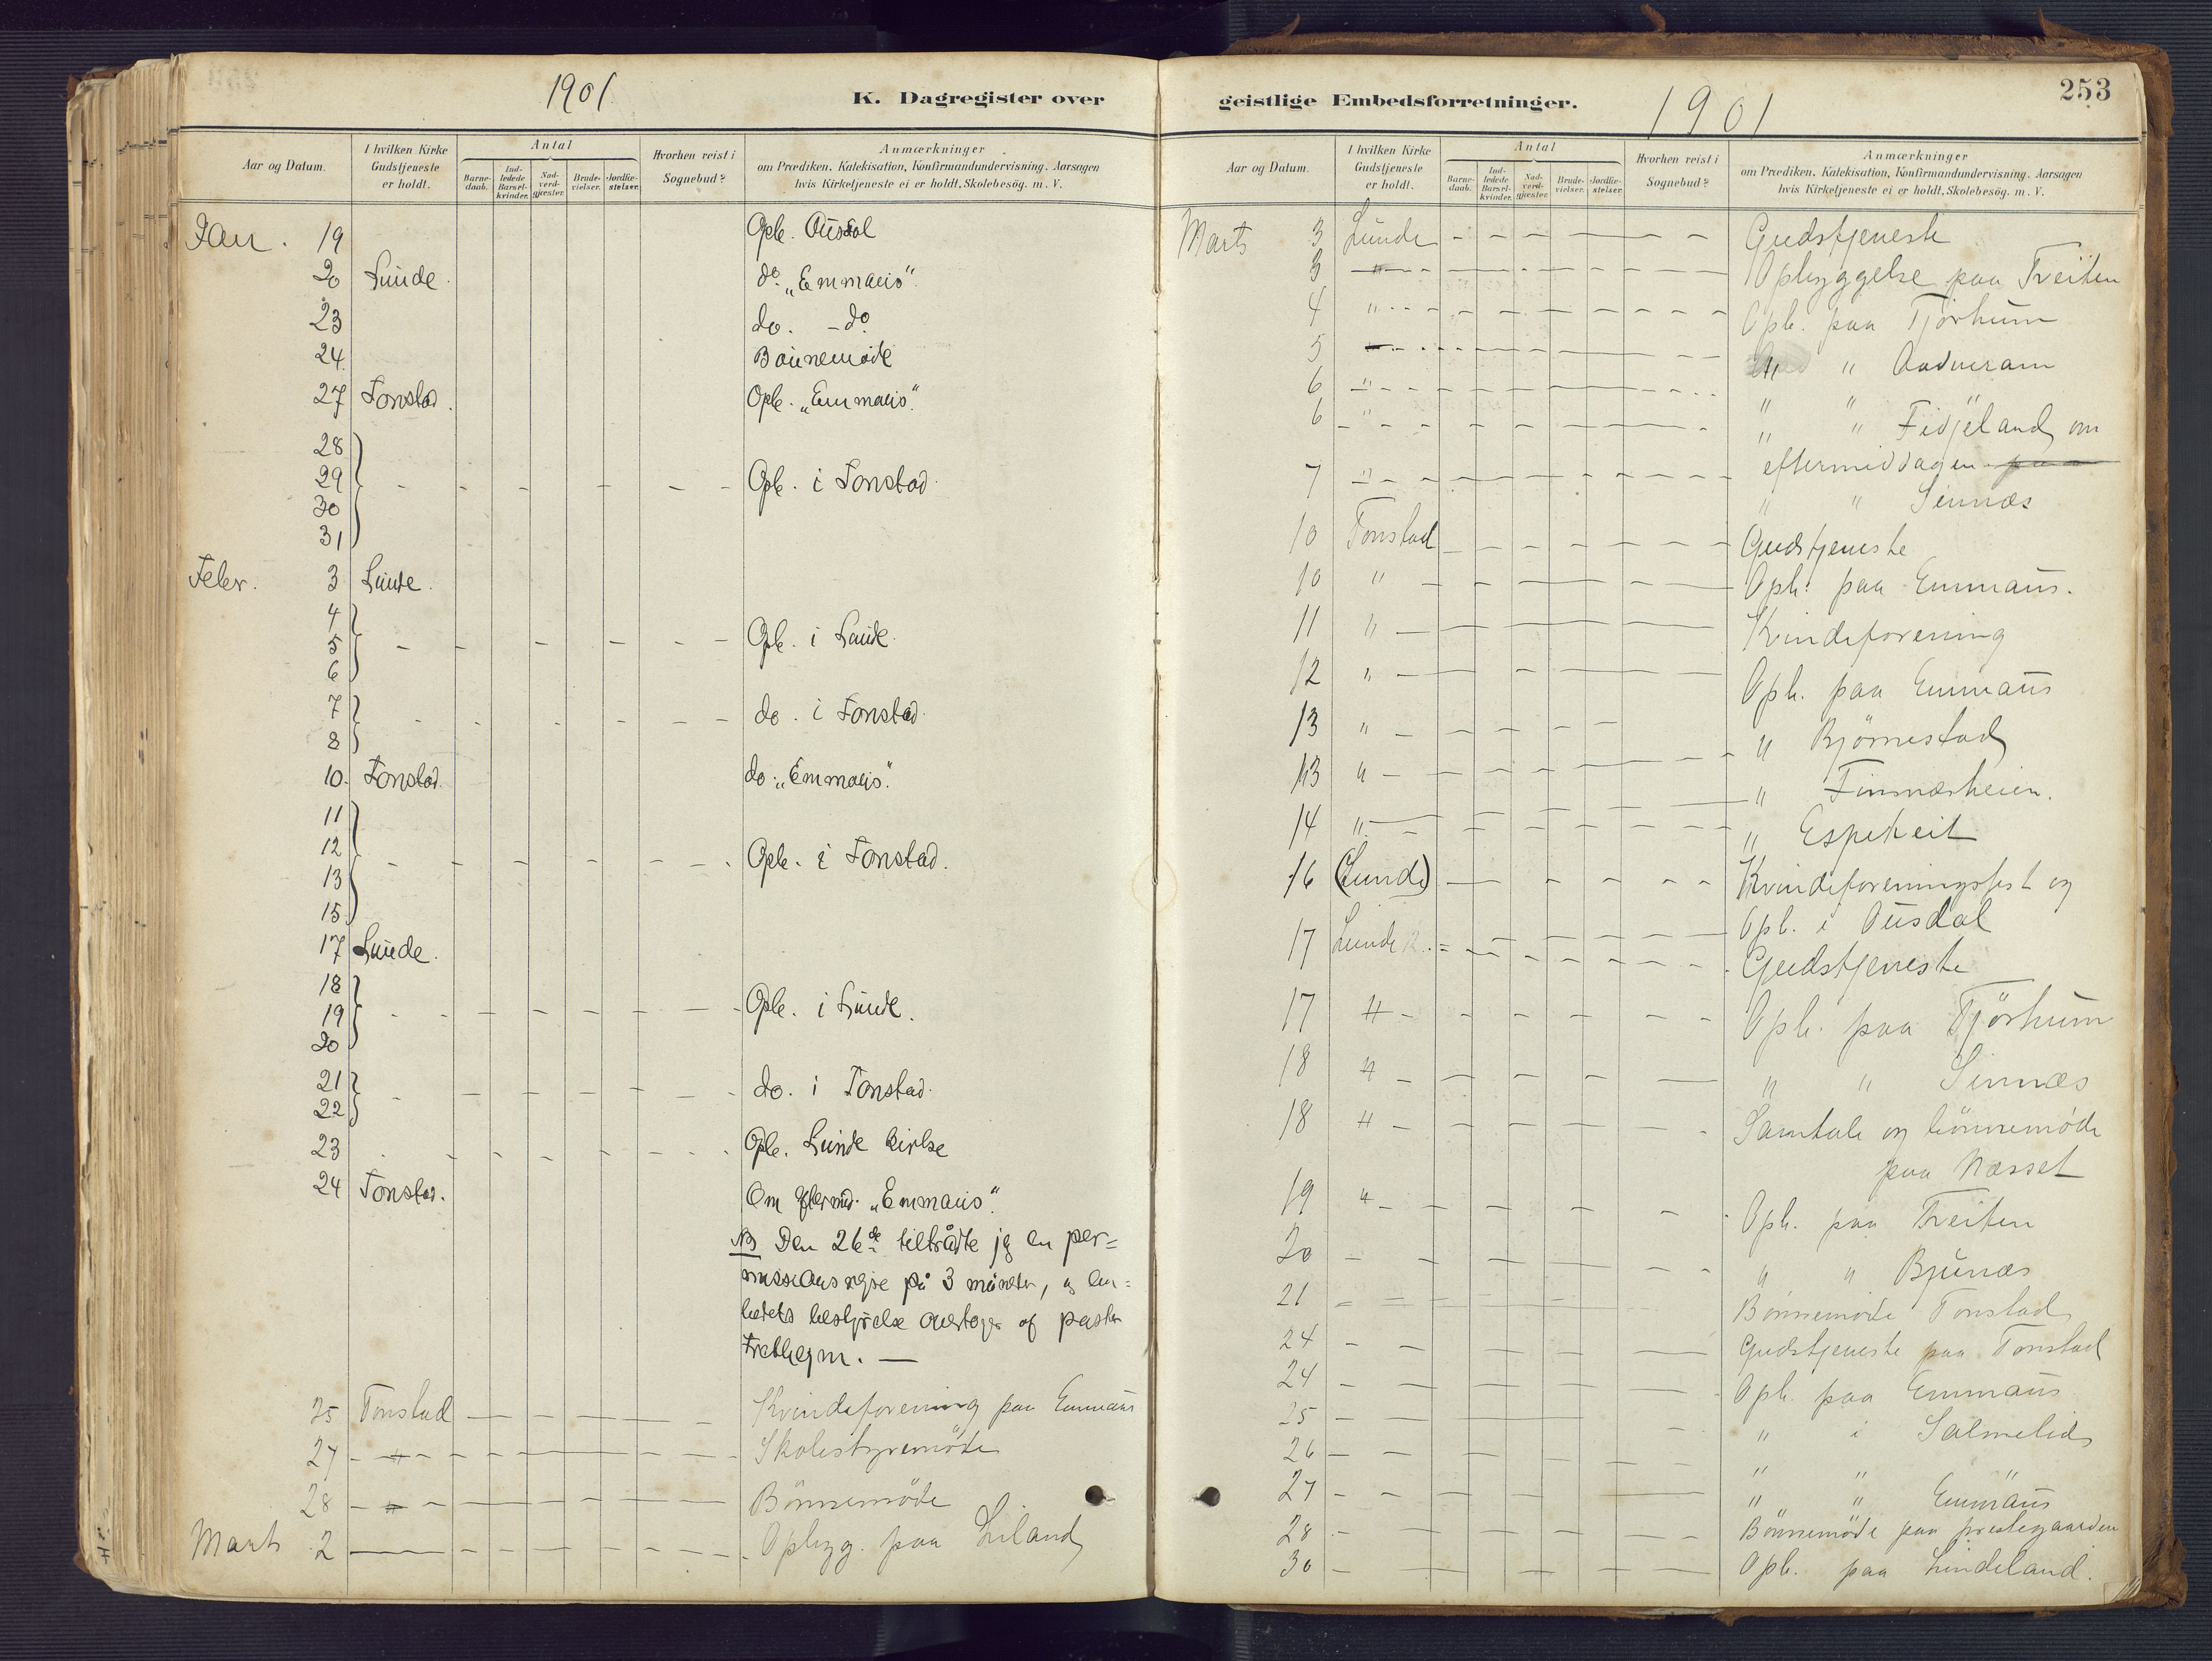 1901
K. Dagregister over
Aar og Datum.
I hvilken Kirke Gudstjeneste er holdt.
Antal
Barne-daab.
Ind-ledede Barsel-kvinder.
Nad-verd-gjester.
Brude-vielser.
Jordfæ-stelser.
Hvorhen reist i Sognebud?
Anmærkninger
om Prædiken, Katekisation, Konfirmandundervisning. Aarsagen
hvis Kirketjeneste ei er holdt, Skolebesög. m. V.
Jan. 19 Opb. Ousdal
20 Lunde. do. „Emmaus"
23 do. - do.
24. Bönnemöde
27 Tonstad. Opb. „Emmaus".
28
29 - - - - - - Opb. i Tonstad.
30
31
Febr. 3 Lunde.
4
5 - - - - - - Opb. i Lunde.
6
7 - - - - - - do. i Tonstad.
8
10. Tonstad. do. „Emmaus".
11
12 - - - - - - Opb. i Tonstad.
13
15.
17 Lunde.
18
19 - - - - - - Opb. i Lunde.
20
21 - - - - - - do. i Tonstad.
22
23 - - - - - - Opb. Lunde kirke
24 Tonstad. Om eftermid. „Emmaus".
NB Den 26de tiltrådte jeg en per=
missions rejse på 3 måneder, og em=
bedets bestyrelse overtoges af pastor
Tretheym. —
25 Tonstad - - - - Kvindeforening paa Emmaus
27 - " - - - - Skolestyremöde
28 - " - - - - Bönnemöde
Marts 2 - - - - Opbygg. paa Liland
253
geistlige Embedsforretninger.
1901
Aar og Datum.
I hvilken Kirke Gudstjeneste er holdt.
Antal
Barne-daab.
Ind-ledede Barsel-kvinder.
Nad-verd-gjester.
Brude-vielser.
Jordfæ-stelser.
Hvorhen reist i Sognebud?
Anmærkninger
om Prædiken, Katekisation, Konfirmandundervisning. Aarsagen
hvis Kirketjeneste ei er holdt, Skolebesög. m. V.
Marts 3 Lunde - - - - Gudstjeneste
3 - " - - - - Opbyggelse paa Treiten
4 " - - - - Opb. paa Tjörhum
5 " - - - - " " Aadneram
6 " - - - - " "
6 " - - - - " " Fidjeland om
eftermiddagen
7 " - - - - " " Sinnæs
10 Tonstad - - - - Gudstjeneste
10 " - - - - Opb. paa Emmaus.
11 " - - - - Kvindeforening
12 " - - - - Opb. paa Emmaus
13 " - - - - " Bjørnestad
13 " - - - - " Finnæsheien.
14 " - - - - " Espeheit
16 (Lunde) - - - - Kvindeforeningsfest og
Opb. i Ousdal
17 Lunde K. - - - - Gudstjeneste
17 " - - - - Opb. paa Tjörhum
18 " - - - - " " Sinnæs
18 " - - - - Samtale og bönnemöde
paa Næsset
19 " - - - - Opb. paa Treiten
20 - - - - " " Bjunæs
21 - - - - Bönnemöde Tonstad
24 - - - - Gudstjeneste paa Tonstad
24 - - - - Opb. paa Emmaus
25 - - - - " i Salmelid
26 - - - - " "
27 - - - - " " Emmaus
28 - - - - Bönnemöde paa prestegaarden
30 - - - - Opb. paa Lindeland.